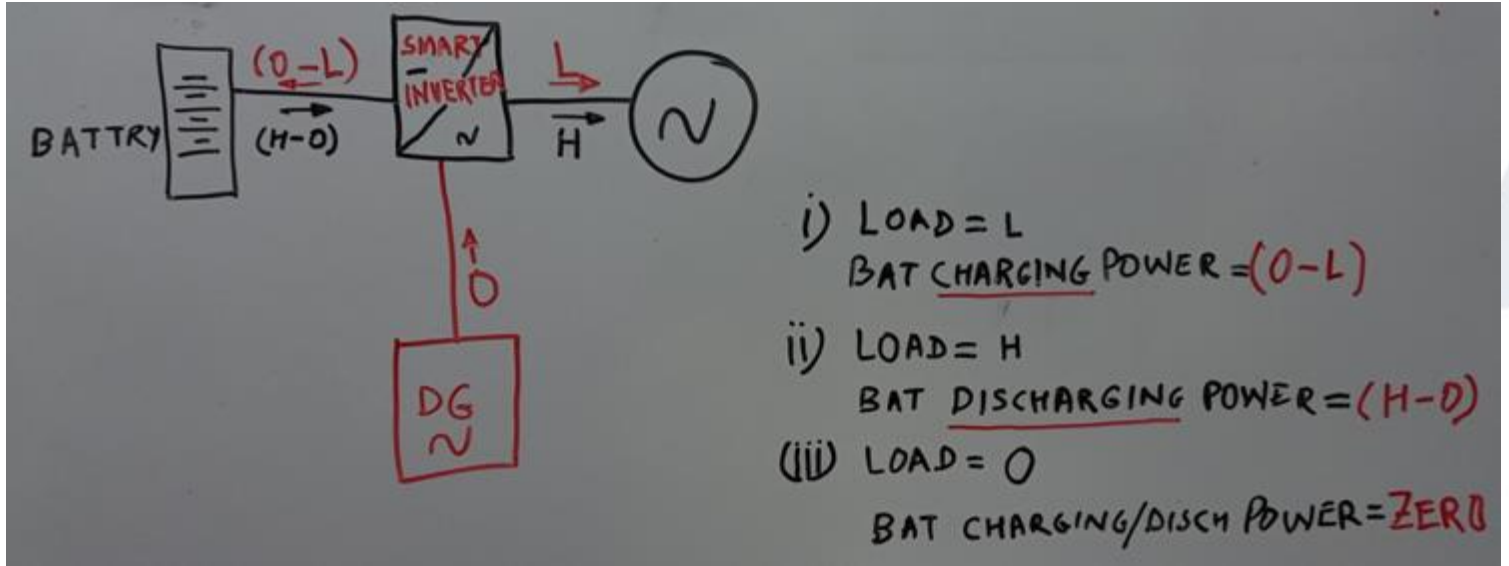 (O-L)
BATTRY
(H-O)
SMART
INVERTER
~
L
H
~
O
DG
~
i) LOAD = L
BAT CHARGING POWER = (O-L)
ii) LOAD = H
BAT DISCHARGING POWER = (H-O)
(iii) LOAD = O
BAT CHARGING/DISCH POWER = ZERO